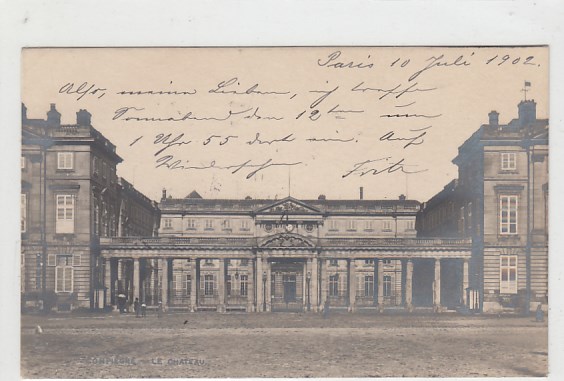 Paris 10 Juli 1902.
Also, meine Lieben, ich treffe
Sonnabend den 12ten um
1 Uhr 55 dort ein. Auf
Wiedersehn Fritz
LE CHATEAU.